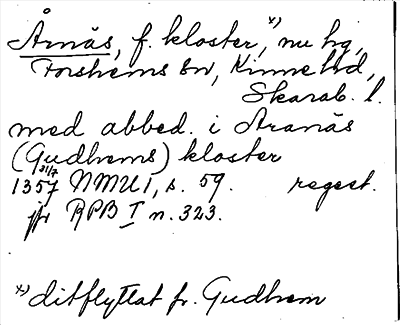 Årnäs, f. kloster, x) nu hg,
Forshems sn, Kinne hd,
Skarab. l.
med abbed. i Aranäs
(Gudhems) kloster
1357 31/7 NMU 1, s. 59. regest.
jfr RPB I n. 323.
x) ditflyttat fr. Gudhem